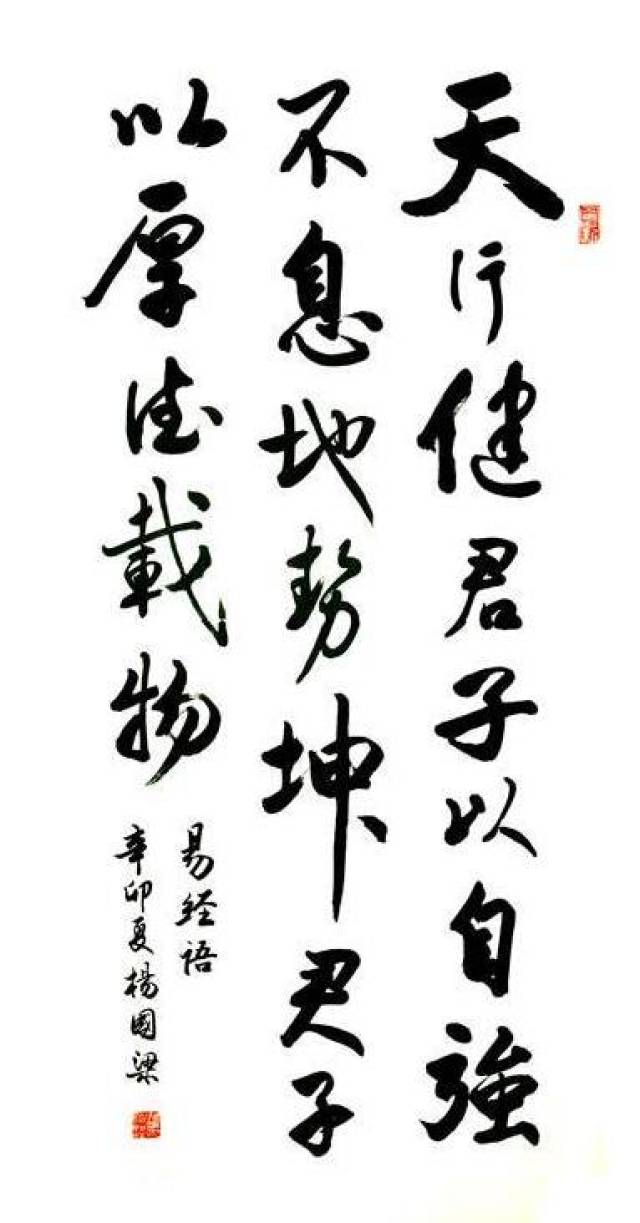 天行健君子以自強
不息地勢坤君子
以厚德載物
易经语
辛卯夏楊國梁